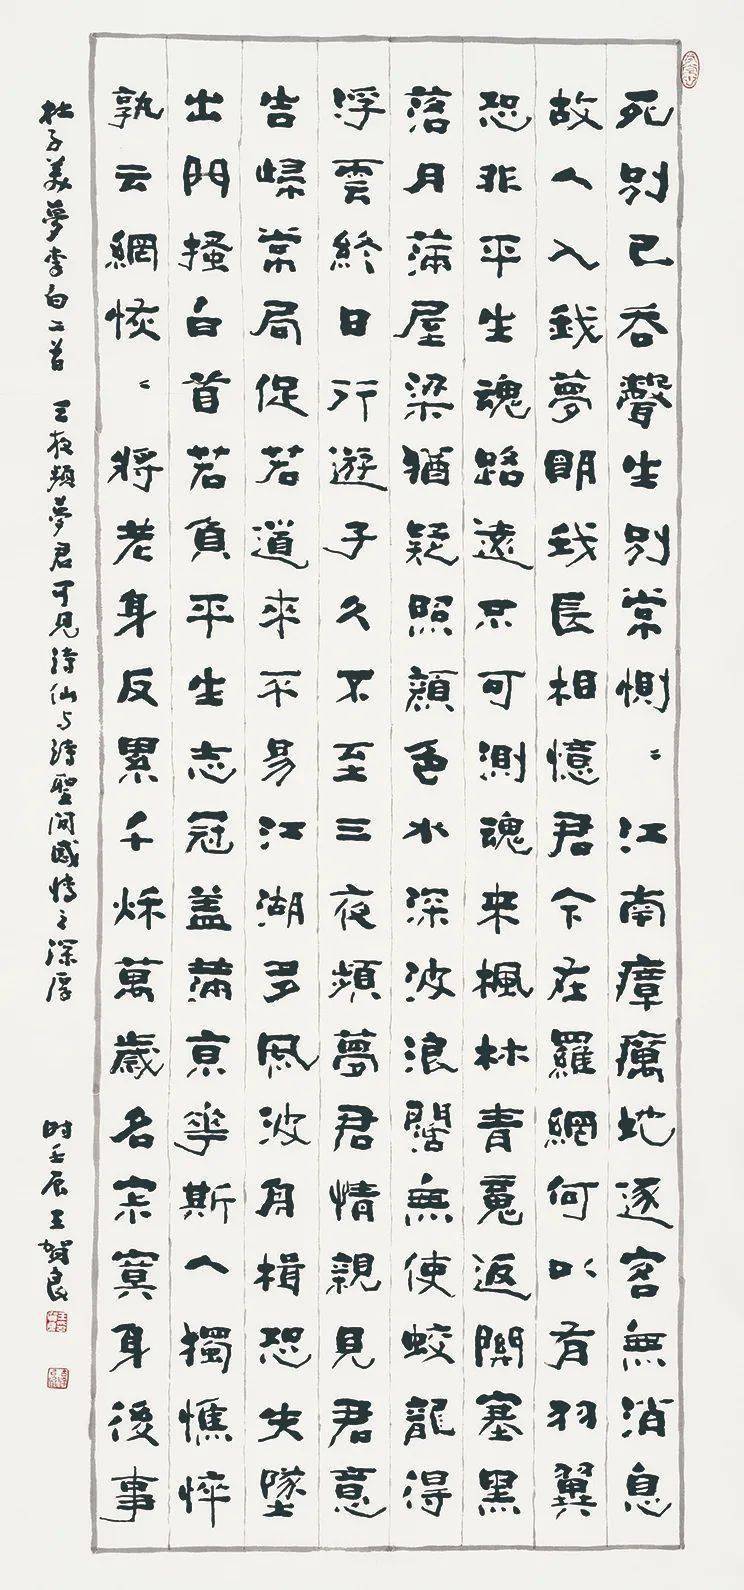 死別已吞聲生別常惻〻江南瘴癘地逐客無消息
故人入我夢明我長相憶君今在羅網何以有羽翼
恐非平生魂路遠不可測魂來楓林青魂返關塞黑
落月滿屋梁猶疑照顏色水深波浪闊無使蛟龍得
浮雲終日行遊子久不至三夜頻夢君情親見君意
告歸常局促苦道來不易江湖多風波舟楫恐失墜
出門搔白首若負平生志冠蓋滿京華斯人獨憔悴
孰云網恢〻將老身反累千秋萬歲名寂寞身後事
杜子美夢李白二首 三夜頻夢君可見詩仙与詩聖間感情之深厚 时壬辰王賀良